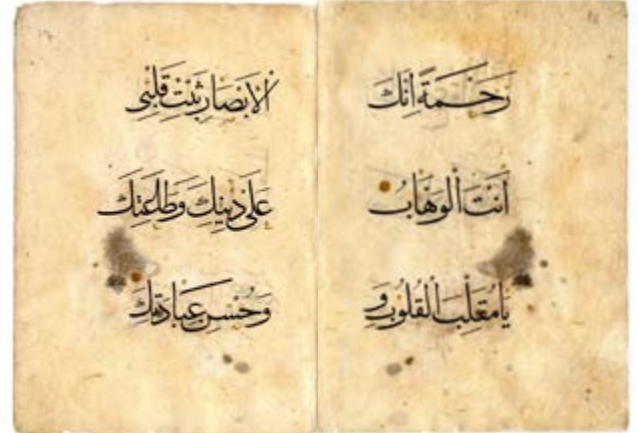 رَحْمَةً اِنَّكَ
اَنْتَ الْوَهَّابُ
يَا مُقَلِّبَ الْقُلُوبِ وَ
الْاَبْصَارِ ثَبِّتْ قَلْبِى
عَلَى دِينِكَ وَطَاعَتِكَ
وَحُسْنِ عِبَادَتِكَ